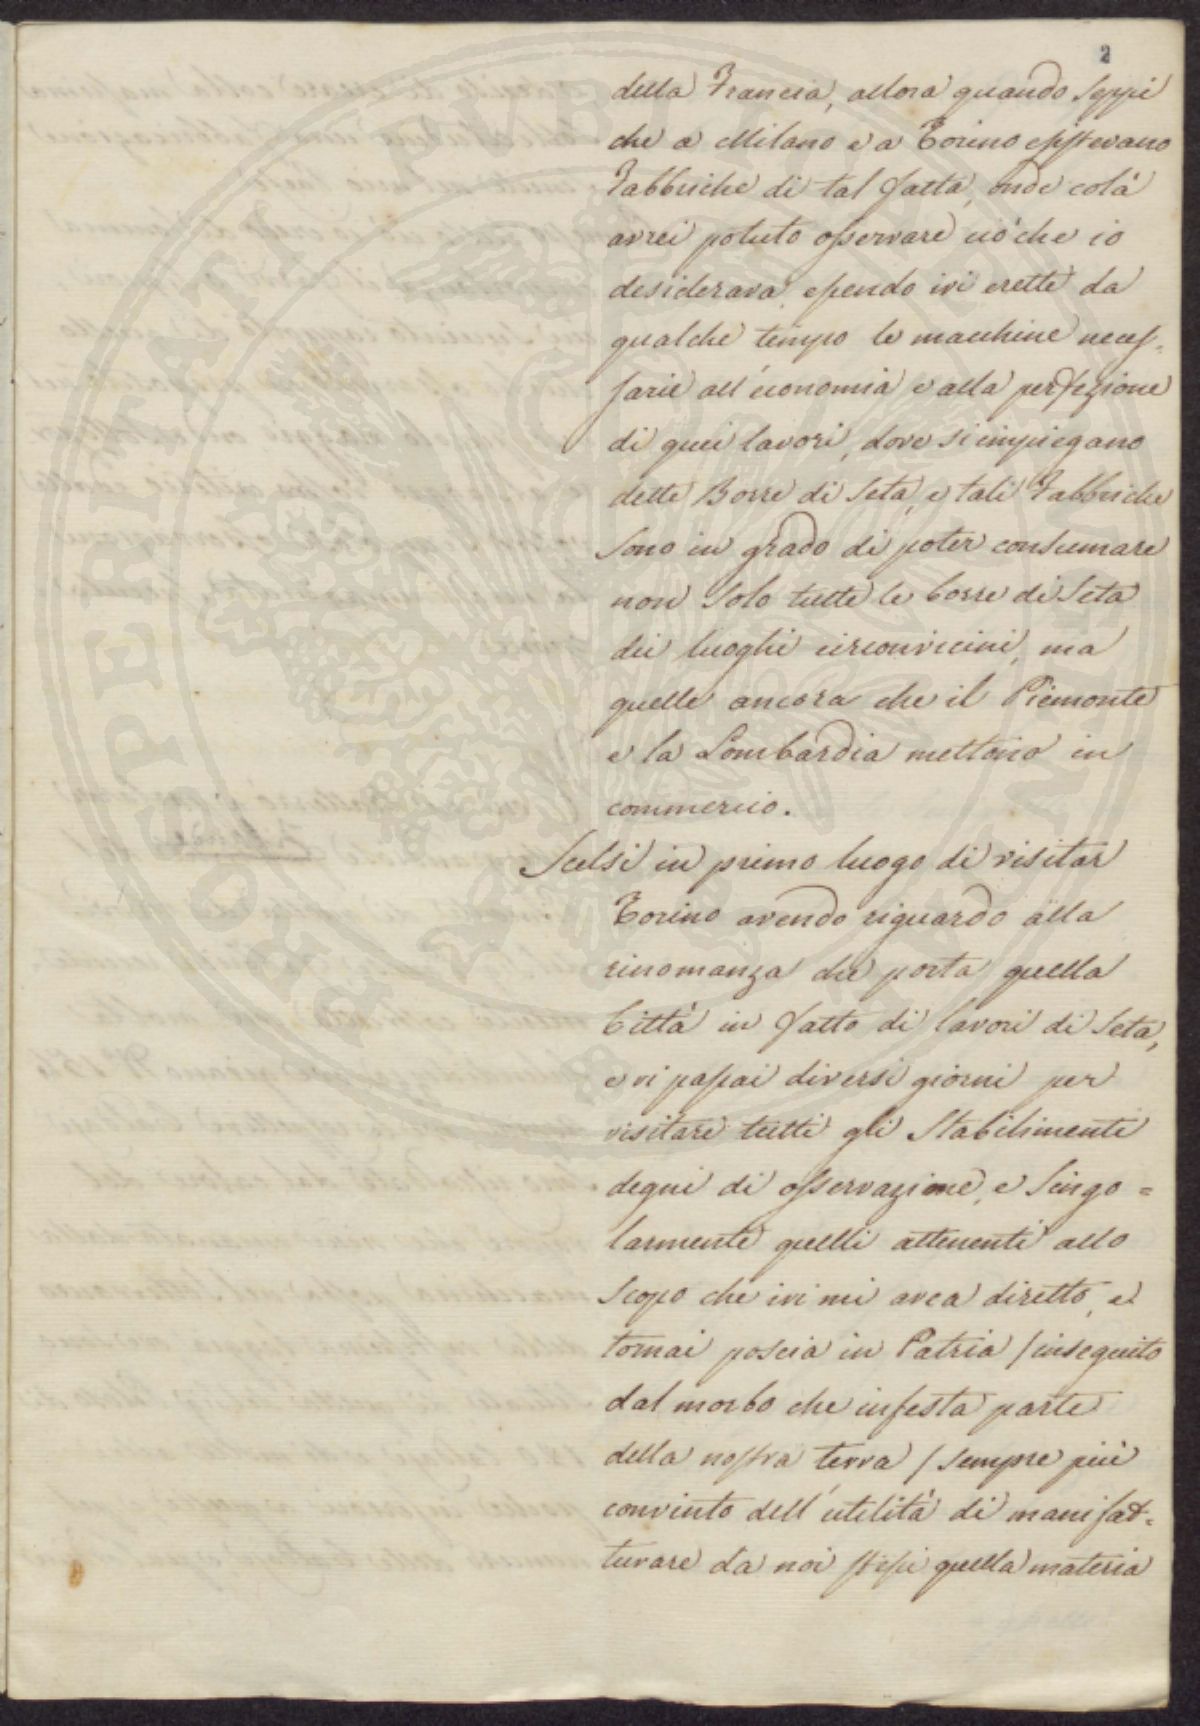 2
della Francia, allora quando seppi
che a Milano e a Torino esistevano
Fabbriche di tal fatta, onde colà
avrei potuto osservare ciò che io
desiderava, essendo ivi erette da
qualche tempo le macchine neces-
sarie all'economia e alla perfezione
di quei lavori, dove si impiegano
dette Borre di Seta, e tali Fabbriche
sono in grado di poter consumare
non solo tutte le borre di Seta
dei luoghi circonvicini, ma
quelle ancora che il Piemonte
e la Lombardia mettono in
commercio.
Scelsi in primo luogo di visitar
Torino avendo riguardo alla
rinomanza che porta quella
Città in fatto di lavori di Seta,
e vi passai diversi giorni per
visitare tutti gli Stabilimenti
degni di osservazione, e singo=
larmente quelli attenenti allo
scopo che ivi mi avea diretto, e
tornai poscia in Patria / inseguito
dal morbo che infesta parte
della nostra terra / sempre più
convinto dell'utilità di manifat-
turare da noi stessi quella materia
PROSPERITATI PUBLICAE